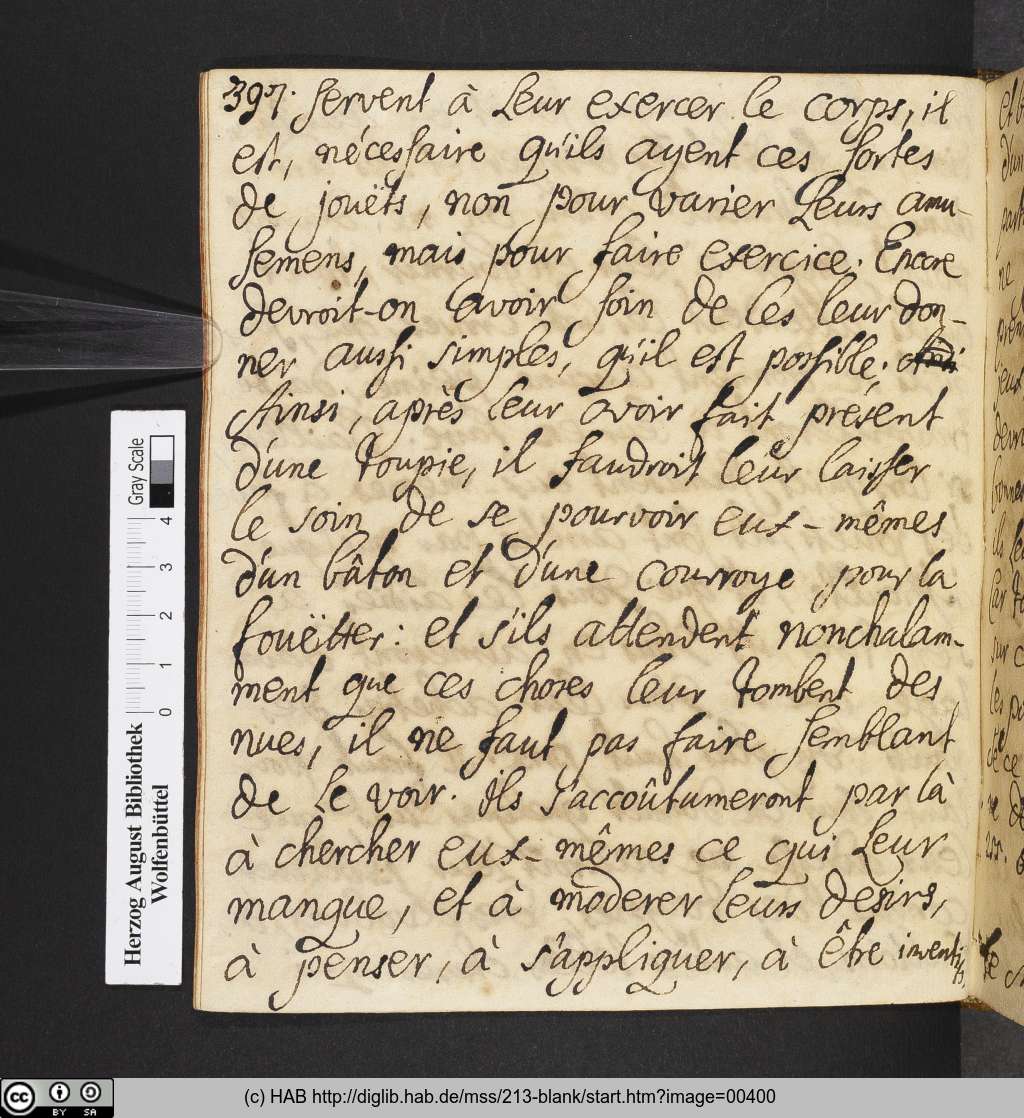 397. servent à leur exercer le corps, il
est, nécessaire qu'ils ayent ces sortes
de jouëts, non pour varier leurs amu-
semens, mais pour faire exercice. Encore
devroit-on avoir soin de les leur don-
ner aussi simples, qu'il est possible;
Ainsi, après leur avoir fait présent
d'une toupie, il faudroit leur laisser
le soin de se pourvoir eux-mêmes
d'un bâton et d'une courroye pour la
fouëtter: et s'ils attendent nonchalam-
ment que ces choses leur tombent des
nues, il ne faut pas faire semblant
de le voir. Ils s'accoûtumeront par là
à chercher eux-mêmes ce qui leur
manque, et à moderer leurs desirs,
à penser, à s'appliquer, à être inventifs,
Gray Scale
0 1 2 3 4
Herzog August Bibliothek
Wolfenbüttel
cc BY SA
(c) HAB http://diglib.hab.de/mss/213-blank/start.htm?image=00400